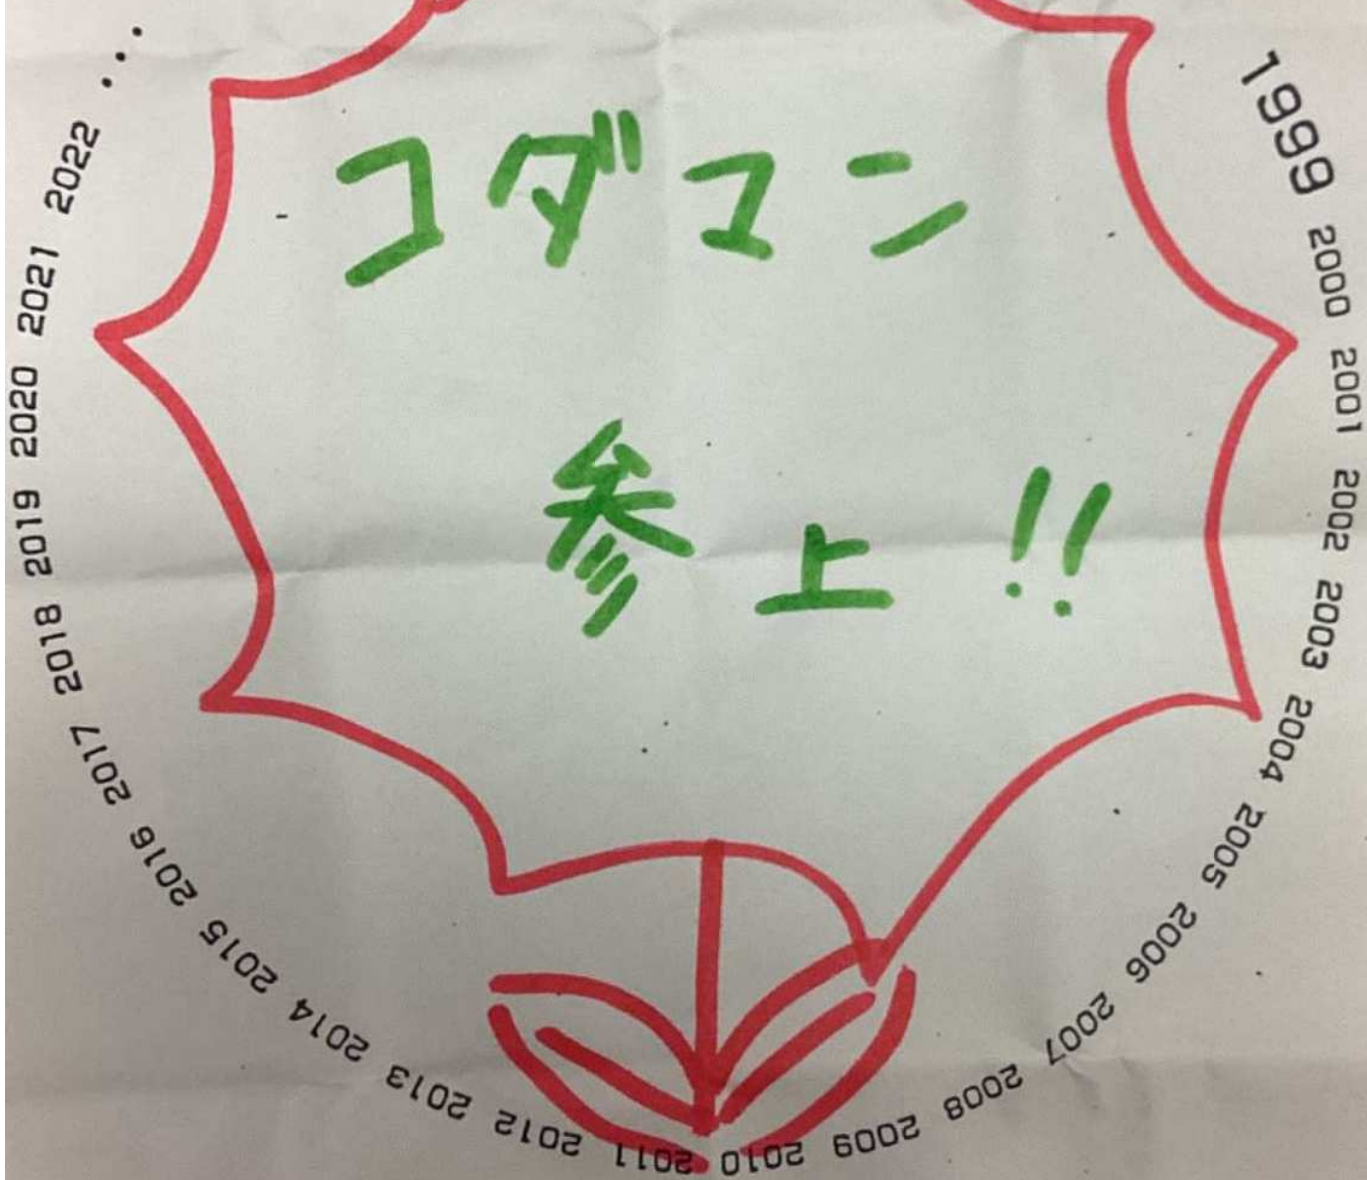 コダマン
参上!!
1999 2000 2001 2002 2003 2004 2005 2006 2007 2008 2009 2010 2011 2012 2013 2014 2015 2016 2017 2018 2019 2020 2021 2022 ...